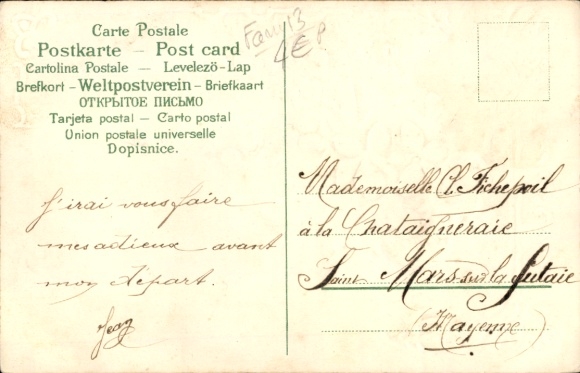 Carte Postale
Postkarte — Post card
Cartolina Postale — Levelezö-Lap
Brefkort - Weltpostverein - Briefkaart
ОТКРЫТОЕ ПИСЬМО
Tarjeta postal — Carto postal
Union postale universelle
Dopisnice.
13
4€
J'irai vous faire
mes adieux avant
mon départ.
Jean
Mademoiselle Cl. Fichepoil
à la Chataigneraie
Saint Mars-sur-la-Futaie
(Mayenne)